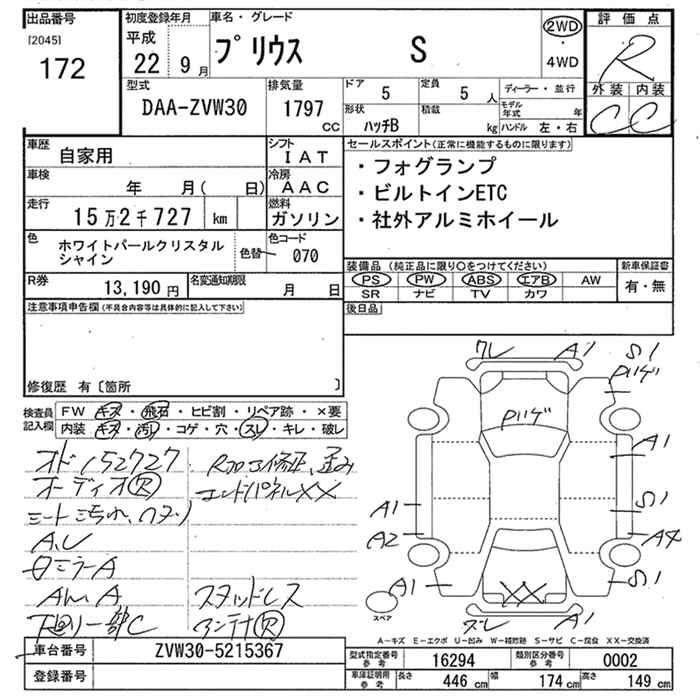 出品番号 初度登録年月 車名・グレード 2WD 評価点
[2045] 平成 プリウス S ・ R
172 22 9月 4WD 外装 内装
型式 排気量 ドア 5 定員 5人 ディーラー・並行 C C
DAA-ZVW30 1797 CC 形状 ハッチB 積載 kg モデル年式 年
ハンドル 左・右
車歴 自家用 シフト IAT セールスポイント(正常に機能するものに限ります)
車検 年 月( 日) 冷房 AAC ・フォグランプ
走行 15万2千727 km 燃料 ガソリン ・ビルトインETC
色 ホワイトパールクリスタル 色替 色コード 070 ・社外アルミホイール
シャイン
装備品(純正品に限り○をつけてください) 新車保証書
R券 13,190円 名変通知期限 月 日 PS PW ABS エアB AW 有・無
SR ナビ TV カワ
注意事項申告欄(不具合内容等は具体的に記入して下さい) 後日品
修復歴 有〔箇所 〕
検査員記入欄 FW キズ・飛石・ヒビ割・リペア跡・×要
内装 キズ・汚レ・コゲ・穴・スレ・キレ・破レ
オド152727
オーディオ欠 エンドパネルXX
シート汚れ
ミラーA
スタッドレス
下廻り一部C アンテナ欠
ワレ A1 S1
A1
A1 S1
A2 A4
A1 XX S1
A1
スペア
A-キズ E-エクボ U-凹み W-補修跡 S-サビ C-腐食 XX-交換済
車台番号 ZVW30-5215367 型式指定番号 参考 16294 類別区分番号 参考 0002
登録番号 車庫証明用 参考 長さ 446 cm 幅 174 cm 高さ 149 cm